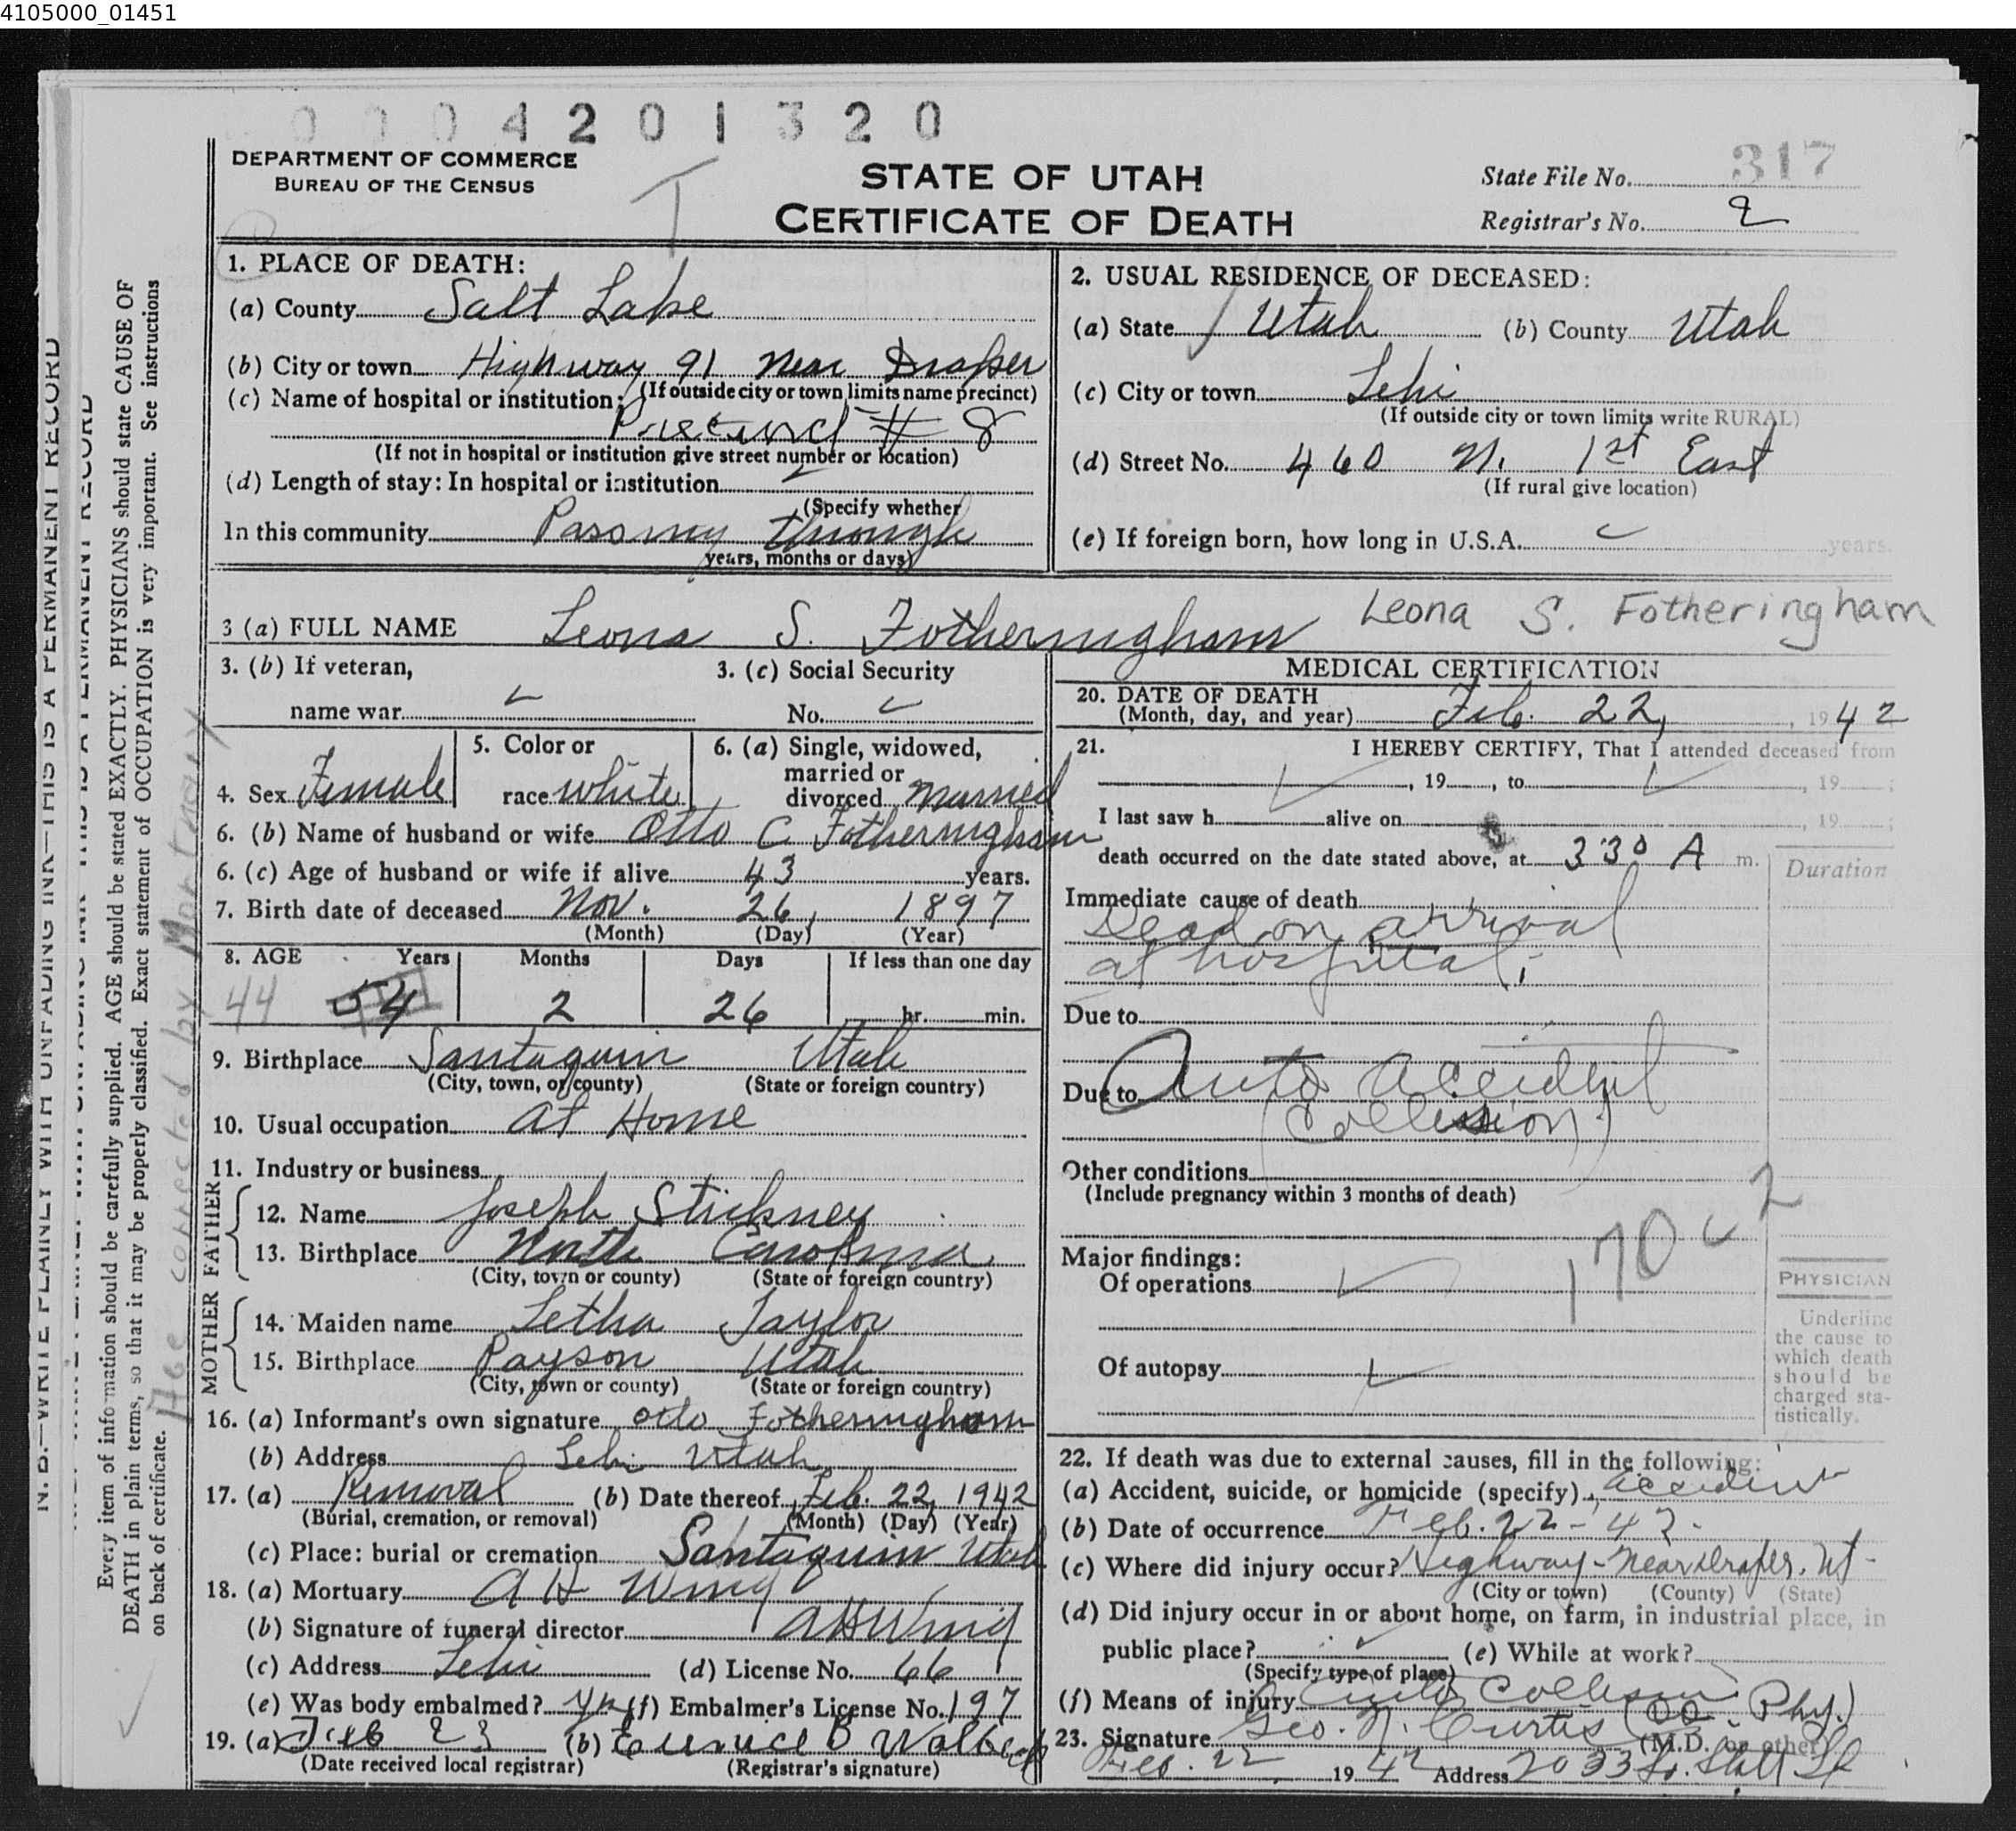 4105000_01451
0004201320
DEPARTMENT OF COMMERCE
BUREAU OF THE CENSUS
T
STATE OF UTAH
CERTIFICATE OF DEATH
State File No. 317
Registrar's No. 2
1. PLACE OF DEATH:
(a) County Salt Lake
(b) City or town Highway 91 near Draper
(If outside city or town limits name precinct)
(c) Name of hospital or institution:
Precinct # 8
(If not in hospital or institution give street number or location)
(d) Length of stay: In hospital or institution
(Specify whether
In this community Passing through
years, months or days)
2. USUAL RESIDENCE OF DECEASED:
(a) State Utah (b) County Utah
(c) City or town Lehi
(If outside city or town limits write RURAL)
(d) Street No. 460 N. 1st East
(If rural give location)
(e) If foreign born, how long in U.S.A. years.
3 (a) FULL NAME Leona S. Fotheringham Leona S. Fotheringham
3. (b) If veteran,
name war
3. (c) Social Security
No.
4. Sex Female
5. Color or
race white
6. (a) Single, widowed,
married or
divorced Married
6. (b) Name of husband or wife Otto C Fotheringham
6. (c) Age of husband or wife if alive 43 years.
7. Birth date of deceased Nov. 26, 1897
(Month) (Day) (Year)
8. AGE Years Months Days If less than one day
44 54 2 26 hr. min.
9. Birthplace Santaquin Utah
(City, town, or county) (State or foreign country)
10. Usual occupation at Home
11. Industry or business
FATHER
12. Name Joseph Stickney
13. Birthplace North Carolina
(City, town or county) (State or foreign country)
MOTHER
14. Maiden name Letha Taylor
15. Birthplace Payson Utah
(City, town or county) (State or foreign country)
16. (a) Informant's own signature Otto Fotheringham
(b) Address Lehi Utah
17. (a) Removal (b) Date thereof Feb. 22, 1942
(Burial, cremation, or removal) (Month) (Day) (Year)
(c) Place: burial or cremation Santaquin Utah
18. (a) Mortuary A H Wing
(b) Signature of funeral director A H Wing
(c) Address Lehi (d) License No. 66
(e) Was body embalmed? yes (f) Embalmer's License No. 197
19. (a) Feb 23 (b) Eunice B
(Date received local registrar) (Registrar's signature)
MEDICAL CERTIFICATION
20. DATE OF DEATH
(Month, day, and year) Feb. 22, 1942
21. I HEREBY CERTIFY, That I attended deceased from
, 19 , to , 19 ;
I last saw h alive on , 19 ;
death occurred on the date stated above, at 3:30 A m.
Duration
Immediate cause of death
Dead on arrival
at hospital;
Due to
Due to Auto accident
(Collission)
Other conditions
(Include pregnancy within 3 months of death)
2
170 c
Major findings:
Of operations
Of autopsy
PHYSICIAN
Underline
the cause to
which death
should be
charged sta-
tistically.
22. If death was due to external causes, fill in the following:
(a) Accident, suicide, or homicide (specify) accident
(b) Date of occurrence Feb. 22-42.
(c) Where did injury occur? Highway - near Draper. Ut-
(City or town) (County) (State)
(d) Did injury occur in or about home, on farm, in industrial place, in
public place? (e) While at work?
(Specify type of place)
(f) Means of injury Auto Collison
23. Signature Geo. N. Curtis (DO. Phy.)
(M.D. or other)
Feb. 22 1942 Address 2033 So. State St
N. B.—WRITE PLAINLY WITH UNFADING INK—THIS IS A PERMANENT RECORD
Every item of information should be carefully supplied. AGE should be stated EXACTLY. PHYSICIANS should state CAUSE OF
DEATH in plain terms, so that it may be properly classified. Exact statement of OCCUPATION is very important. See instructions
on back of certificate.
Age corrected by Mortuary